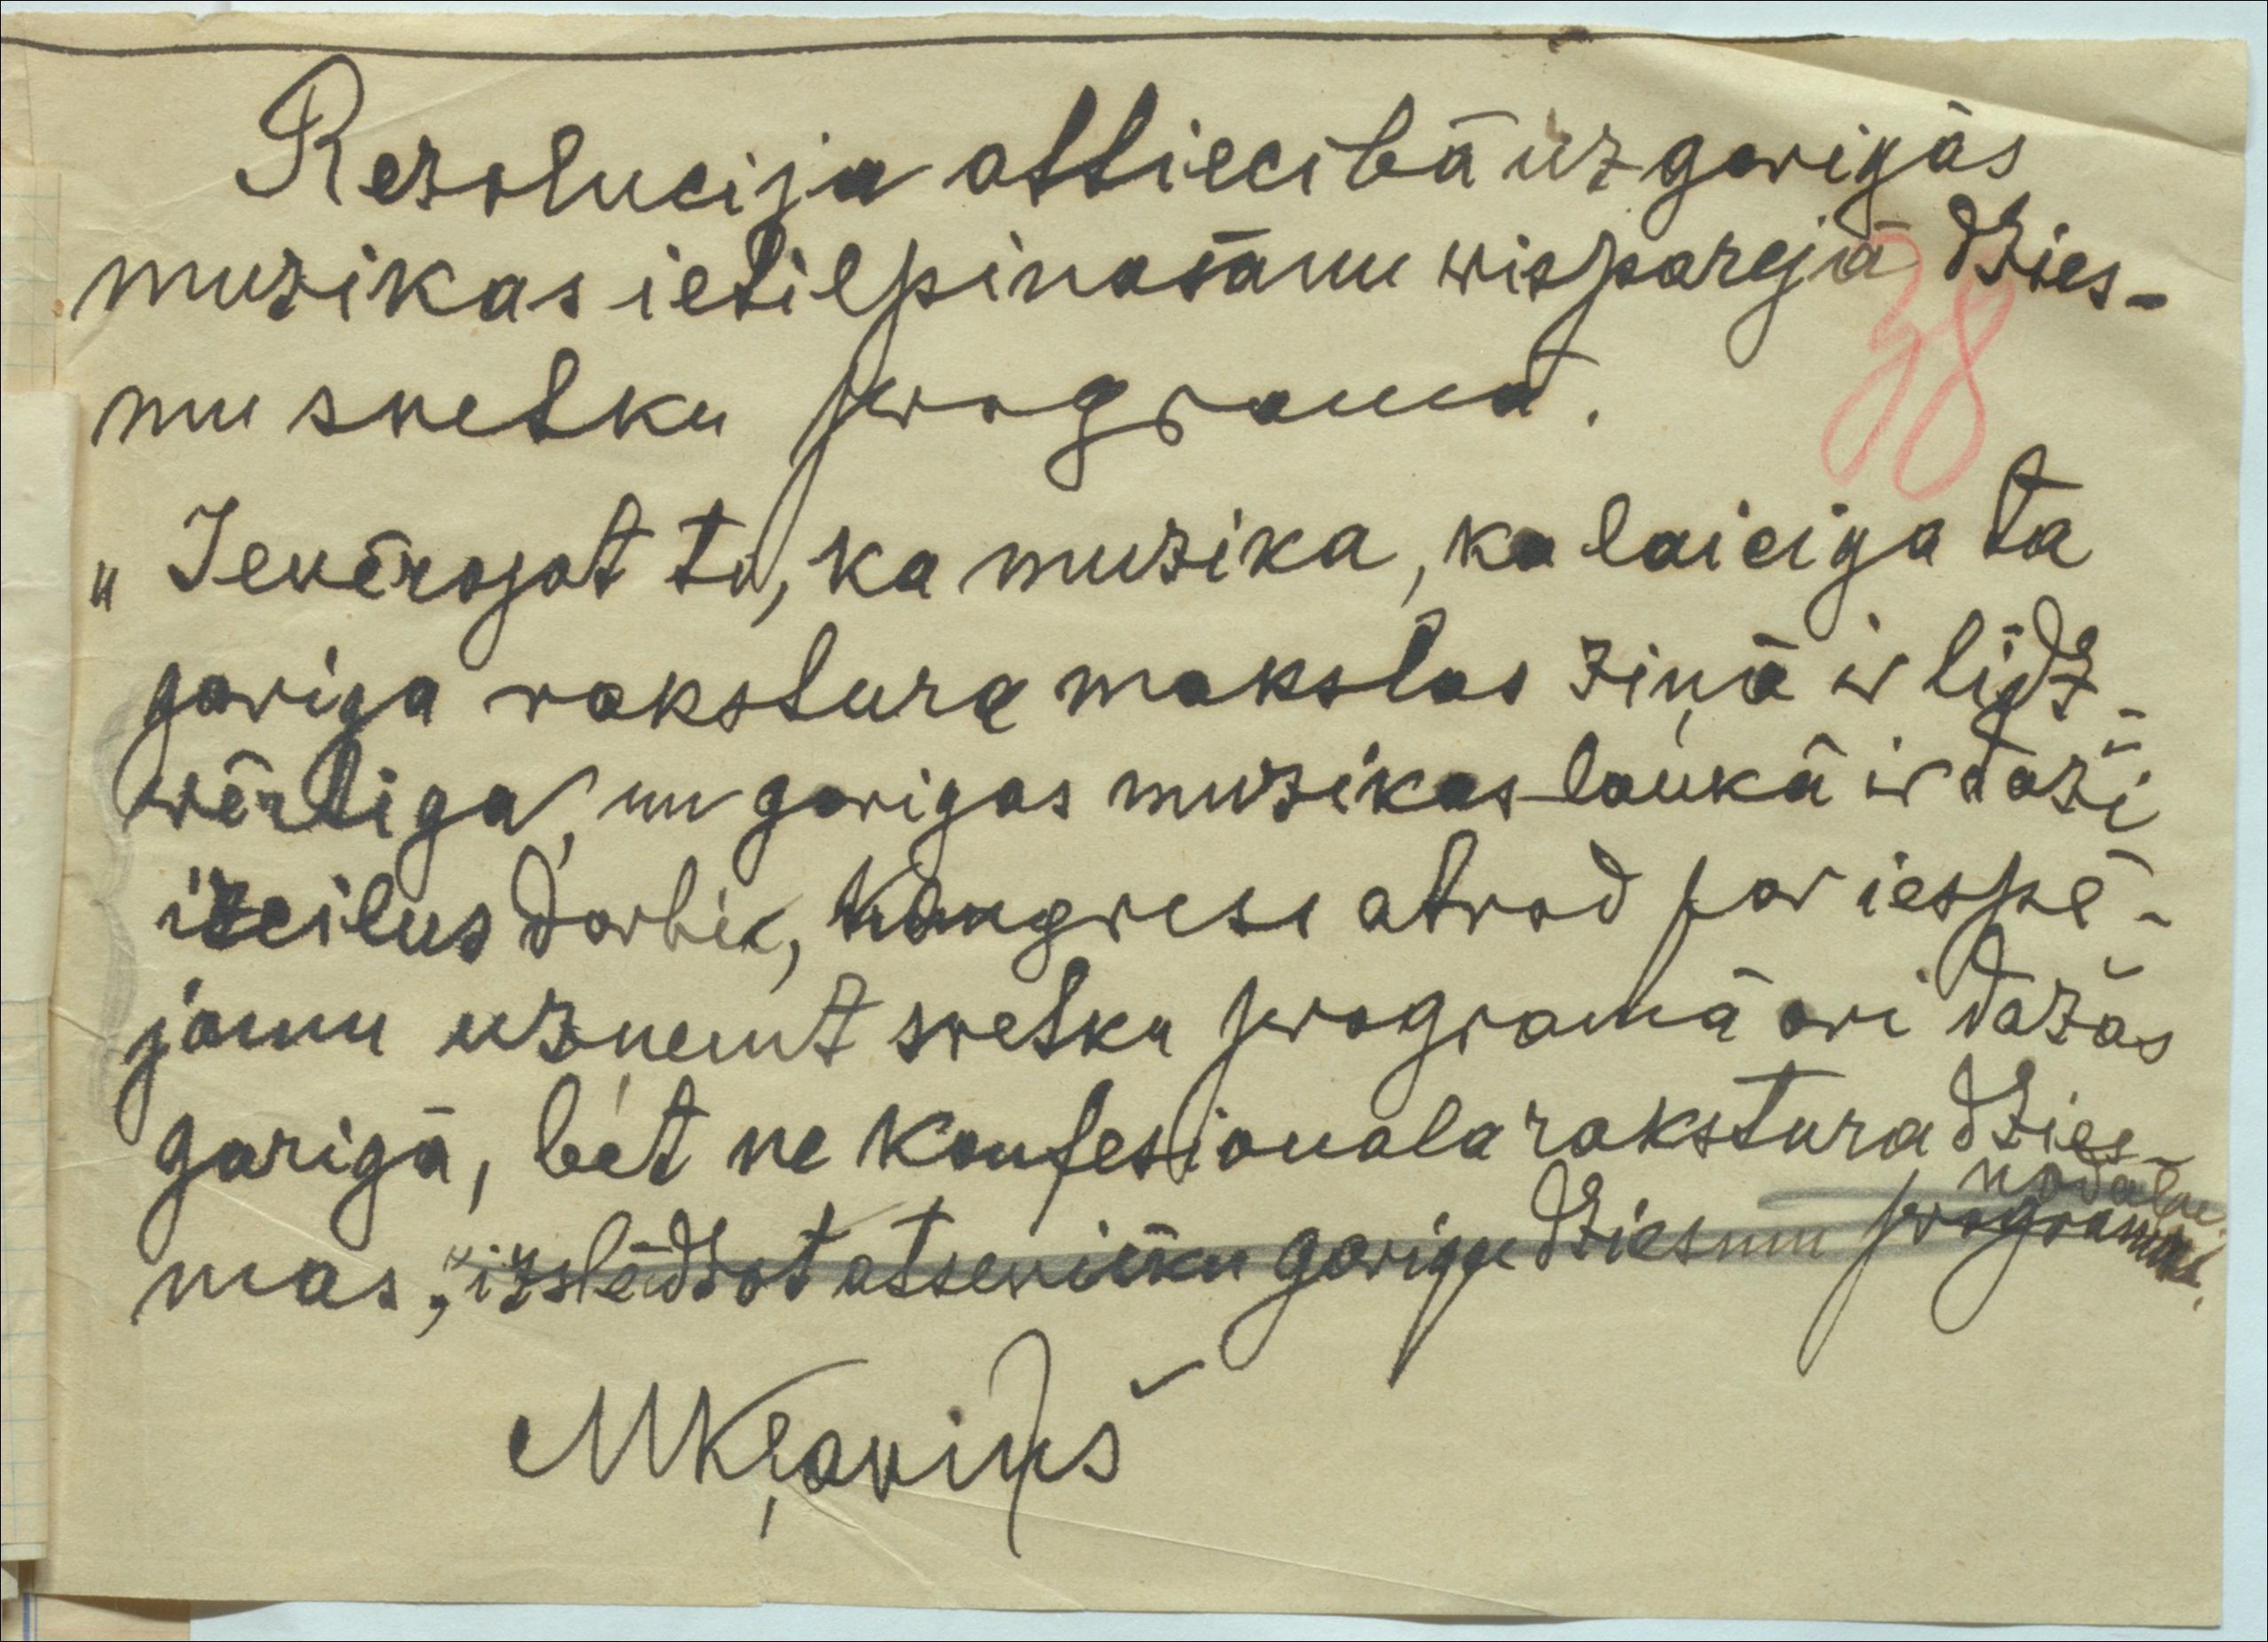 Rezolucija attiecibā uz garigās
muzikas ietilpinašanu wisparejā dzies-
mu svetku programā.
38
„Ievērojot to, ka muzika, ka laiciga ta
gariga rakstura makslas ziņā ir lidz-
wērtiga, un garigas muzikas laukā ir daži
izcilus darbi, kongress atrod par iespē-
jamu uzņemt svetku programā ari dažas
garigā, bet ne konfesionala rakstura dzies-
mas," izslēdzot atsevišku garigu dziesmu programu.
nodalu
MKļaviņš